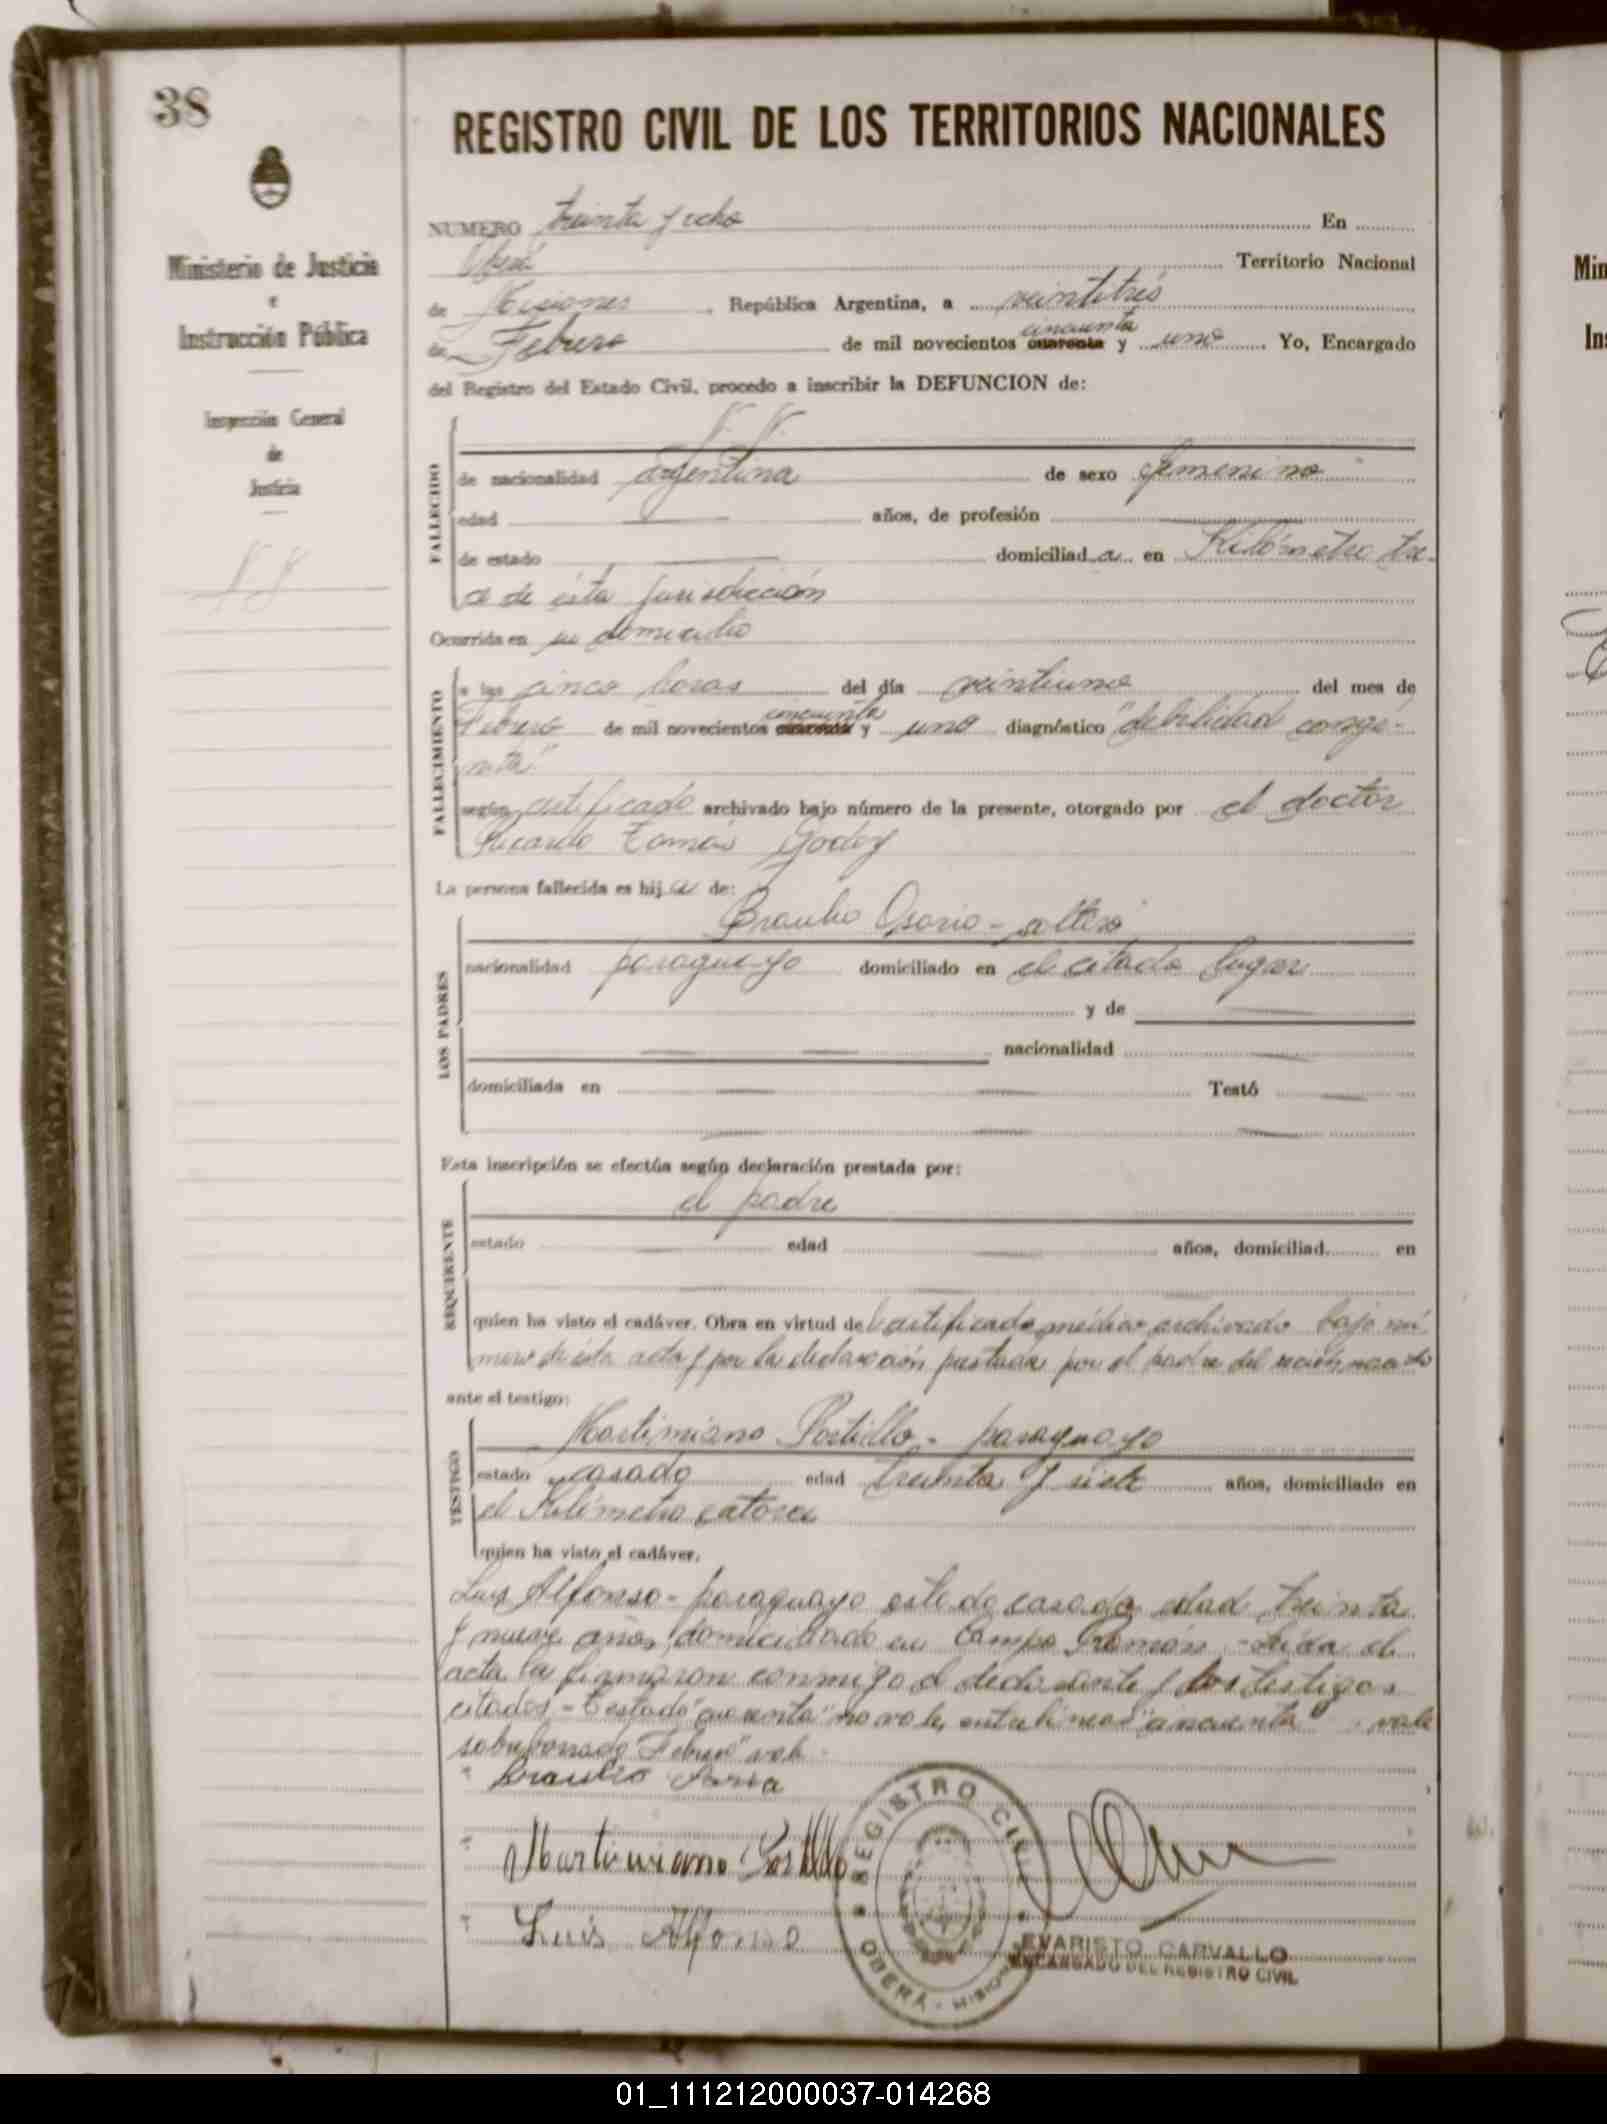 38
REGISTRO CIVIL DE LOS TERRITORIOS NACIONALES
Ministerio de Justicia
e
Instrucción Pública
Inspección General
de
Justicia
N N
NUMERO treinta y ocho En
Oberá Territorio Nacional
de Misiones, República Argentina, a veintitrés
de Febrero de mil novecientos cuarenta cincuenta y uno Yo, Encargado
del Registro del Estado Civil, procedo a inscribir la DEFUNCION de:
FALLECIDO
N N
de nacionalidad argentina de sexo femenino
edad años, de profesión
de estado domiciliad a en Kilómetro
de ésta jurisdicción
Ocurrida en su domicilio
FALLECIMIENTO
a las cinco horas del día veintiuno del mes de
Febrero de mil novecientos cuarenta cincuenta y uno diagnóstico "debilidad congé-
nita"
según certificado archivado bajo número de la presente, otorgado por el doctor
Ricardo Tomás Godoy
La persona fallecida es hij a de:
LOS PADRES
Braulio Osorio - soltero
nacionalidad paraguayo domiciliado en el citado lugar
y de
nacionalidad
domiciliada en Testó
Esta inscripción se efectúa según declaración prestada por:
REQUIRENTE
el padre
estado edad años, domiciliad en
quien ha visto el cadáver. Obra en virtud del certificado médico archivado bajo nú
mero de ésta acta y por la declaración prestada por el padre del recién nacido
ante el testigo:
TESTIGO
Martimiano Portillo - paraguayo
estado casado edad treinta y siete años, domiciliado en
el Kilómetro catorce
quien ha visto el cadáver.
Luis Alfonso - paraguayo estado casado edad treinta
y nueve años, domiciliado en Campo Ramón - Leída el
acta la firmaron conmigo el declarante y los testigos
citados - Testado "cuarenta" no vale, entrelíneas "cincuenta" vale
sobreborrado "Febrero" vale -
Braulio
Martimiano Portillo
Luis Alfonso
REGISTRO CIVIL
OBERÁ - MISIONES
EVARISTO CARVALLO
ENCARGADO DEL REGISTRO CIVIL
01_111212000037-014268